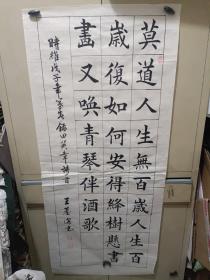 莫道人生無百歲人生百
歲復如何安得絳樹懸書
畫又喚青琴伴酒歌
時維戊子 錄田英章詩
王